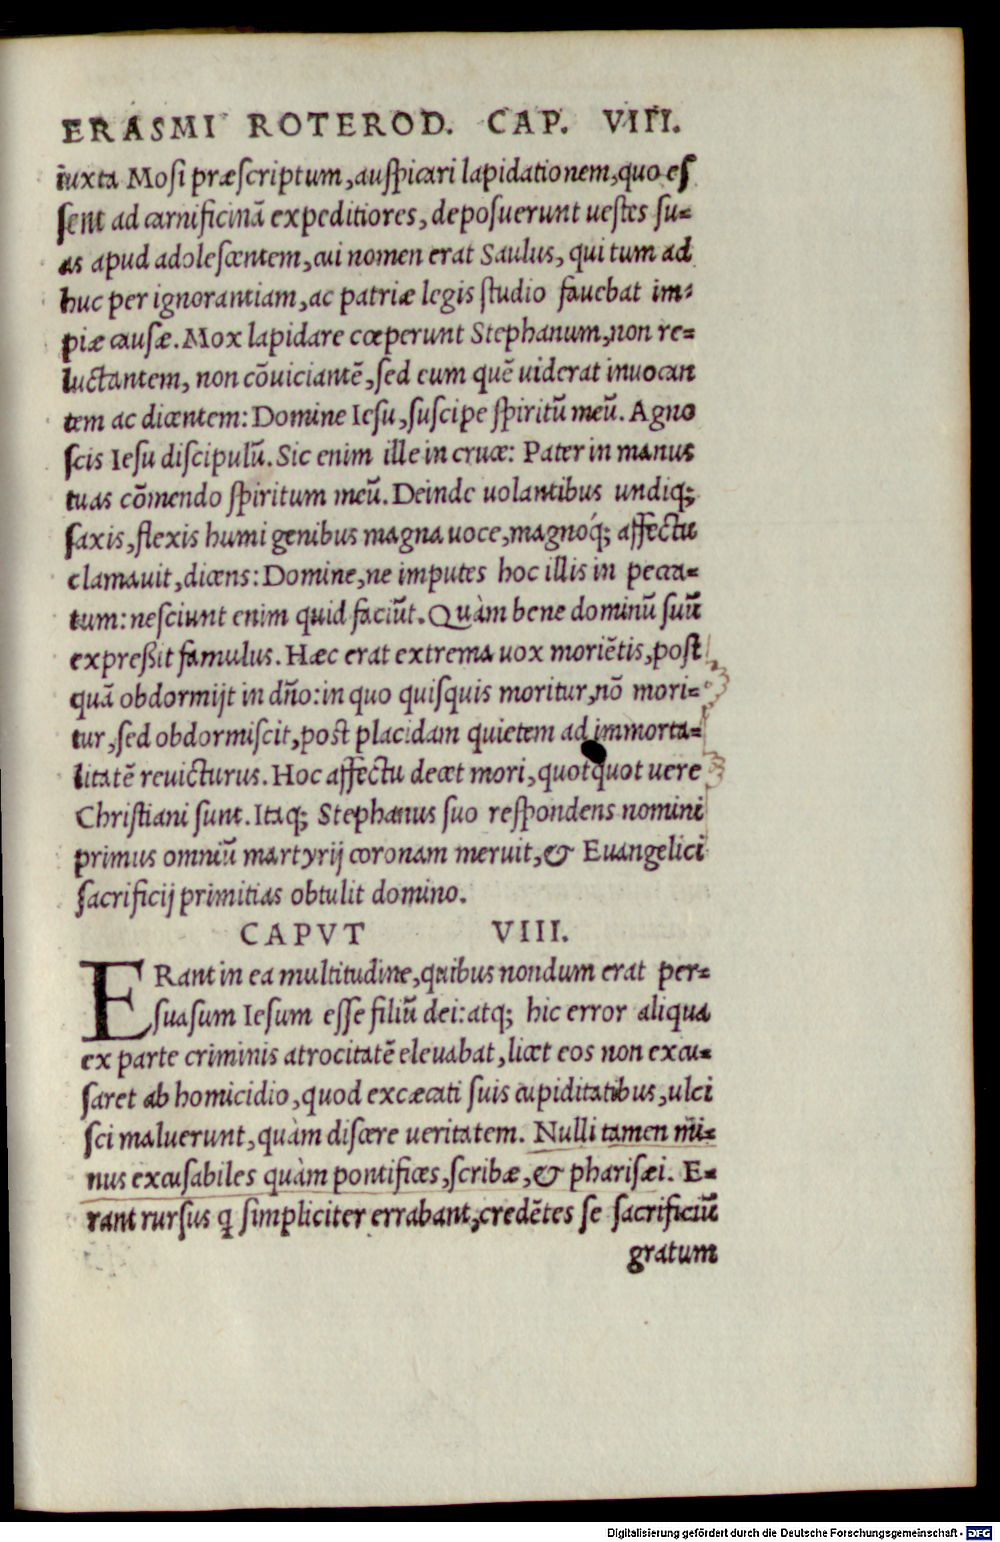 ERASMI ROTEROD. CAP. VIII.
iuxta Mosi præscriptum, auspicari lapidationem, quo es
sent ad carnificinā expeditiores, deposuerunt uestes su=
as apud adolescentem, cui nomen erat Saulus, qui tum ad
huc per ignorantiam, ac patriæ legis studio fauebat im=
piæ causæ. Mox lapidare cœperunt Stephanum, non re=
luctantem, non cōuiciantē, sed eum quē uiderat inuocan
tem ac dicentem: Domine Iesu, suscipe spiritū meū. Agno
scis Iesu discipulū. Sic enim ille in cruce: Pater in manus
tuas cōmendo spiritum meū. Deinde uolantibus undiq;
saxis, flexis humi genibus magna uoce, magnoq́; affectu
clamauit, dicens: Domine, ne imputes hoc illis in pecca=
tum: nesciunt enim quid faciūt. Quàm bene dominū suū
expreßit famulus. Hæc erat extrema uox moriētis, post
quā obdormijt in dño: in quo quisquis moritur, nō mori=
tur, sed obdormiscit, post placidam quietem ad immorta=
litatē reuicturus. Hoc affectu decet mori, quotquot uere
Christiani sunt. Itaq; Stephanus suo respondens nomini
primus omniū martyrij coronam meruit, & Euangelici
sacrificij primitias obtulit domino.
CAPVT VIII.
ERant in ea multitudine, quibus nondum erat per=
suasum Iesum esse filiū dei: atq; hic error aliqua
ex parte criminis atrocitatē eleuabat, licet eos non excu=
saret ab homicidio, quod excæcati suis cupiditatibus, ulci
sci maluerunt, quàm discere ueritatem. Nulli tamen mi=
nus excusabiles quàm pontifices, scribæ, & pharisæi. E=
rant rursus q̃ simpliciter errabant, credētes se sacrificiū
gratum
Digitalisierung gefördert durch die Deutsche Forschungsgemeinschaft - DFG